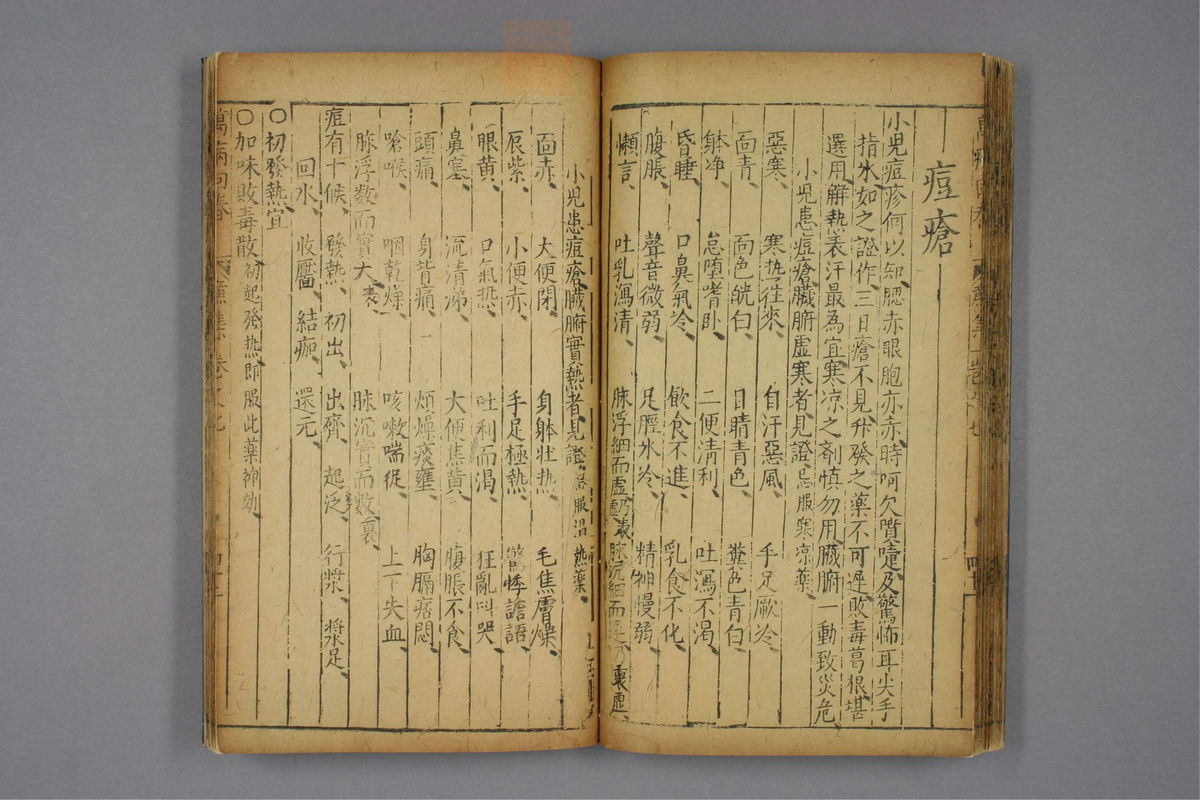 痘瘡
小児痘疹何以知腮赤眼胞亦赤時呵欠噴嚏及驚怖耳尖手
指氷如之證作三日瘡不見升發之藥不可遲敗毒葛根堪
選用解熱表汗最為宜寒凉之剤慎勿用臓腑一動致災危
小児患痘瘡臓腑虚寒者見證忌服寒凉藥
惡寒 寒热往來 自汗惡風 手足厥冷
面青 面色皝白 目睛青色 糞色青白
躰净 怠堕嗜卧 二便清利 吐瀉不渴
昏睡 口鼻氣冷 飲食不進 乳食不化
腹脹 聲音微弱 足脛氷冷 精神慢弱
懶言 吐乳瀉清 脉浮細而虚 表 脉沉細而 裏虚
小児患痘瘡臓腑實熱者見證 服温熱藥
面赤 大便閉 身躰壮热 毛焦膚燥
唇紫 小便赤 手足極熱 驚悸譫語
眼黄 口氣热 吐利而渴 狂亂叫哭
鼻塞 流清涕 大便焦黄 腹脹不食
頭痛 身背痛 煩燥痰壅 胸膈痞悶
嗆喉 咽乾燥 咳嗽喘促 上下失血
脉浮数而實大表 脉沉實而数裏
痘有十候 發熱 初出 出齊 起泛 行漿 漿足
回水 收靨 結痂 還元
〇初發熱宜
〇加味敗毒散初起發热即服此薬神効
萬病回春